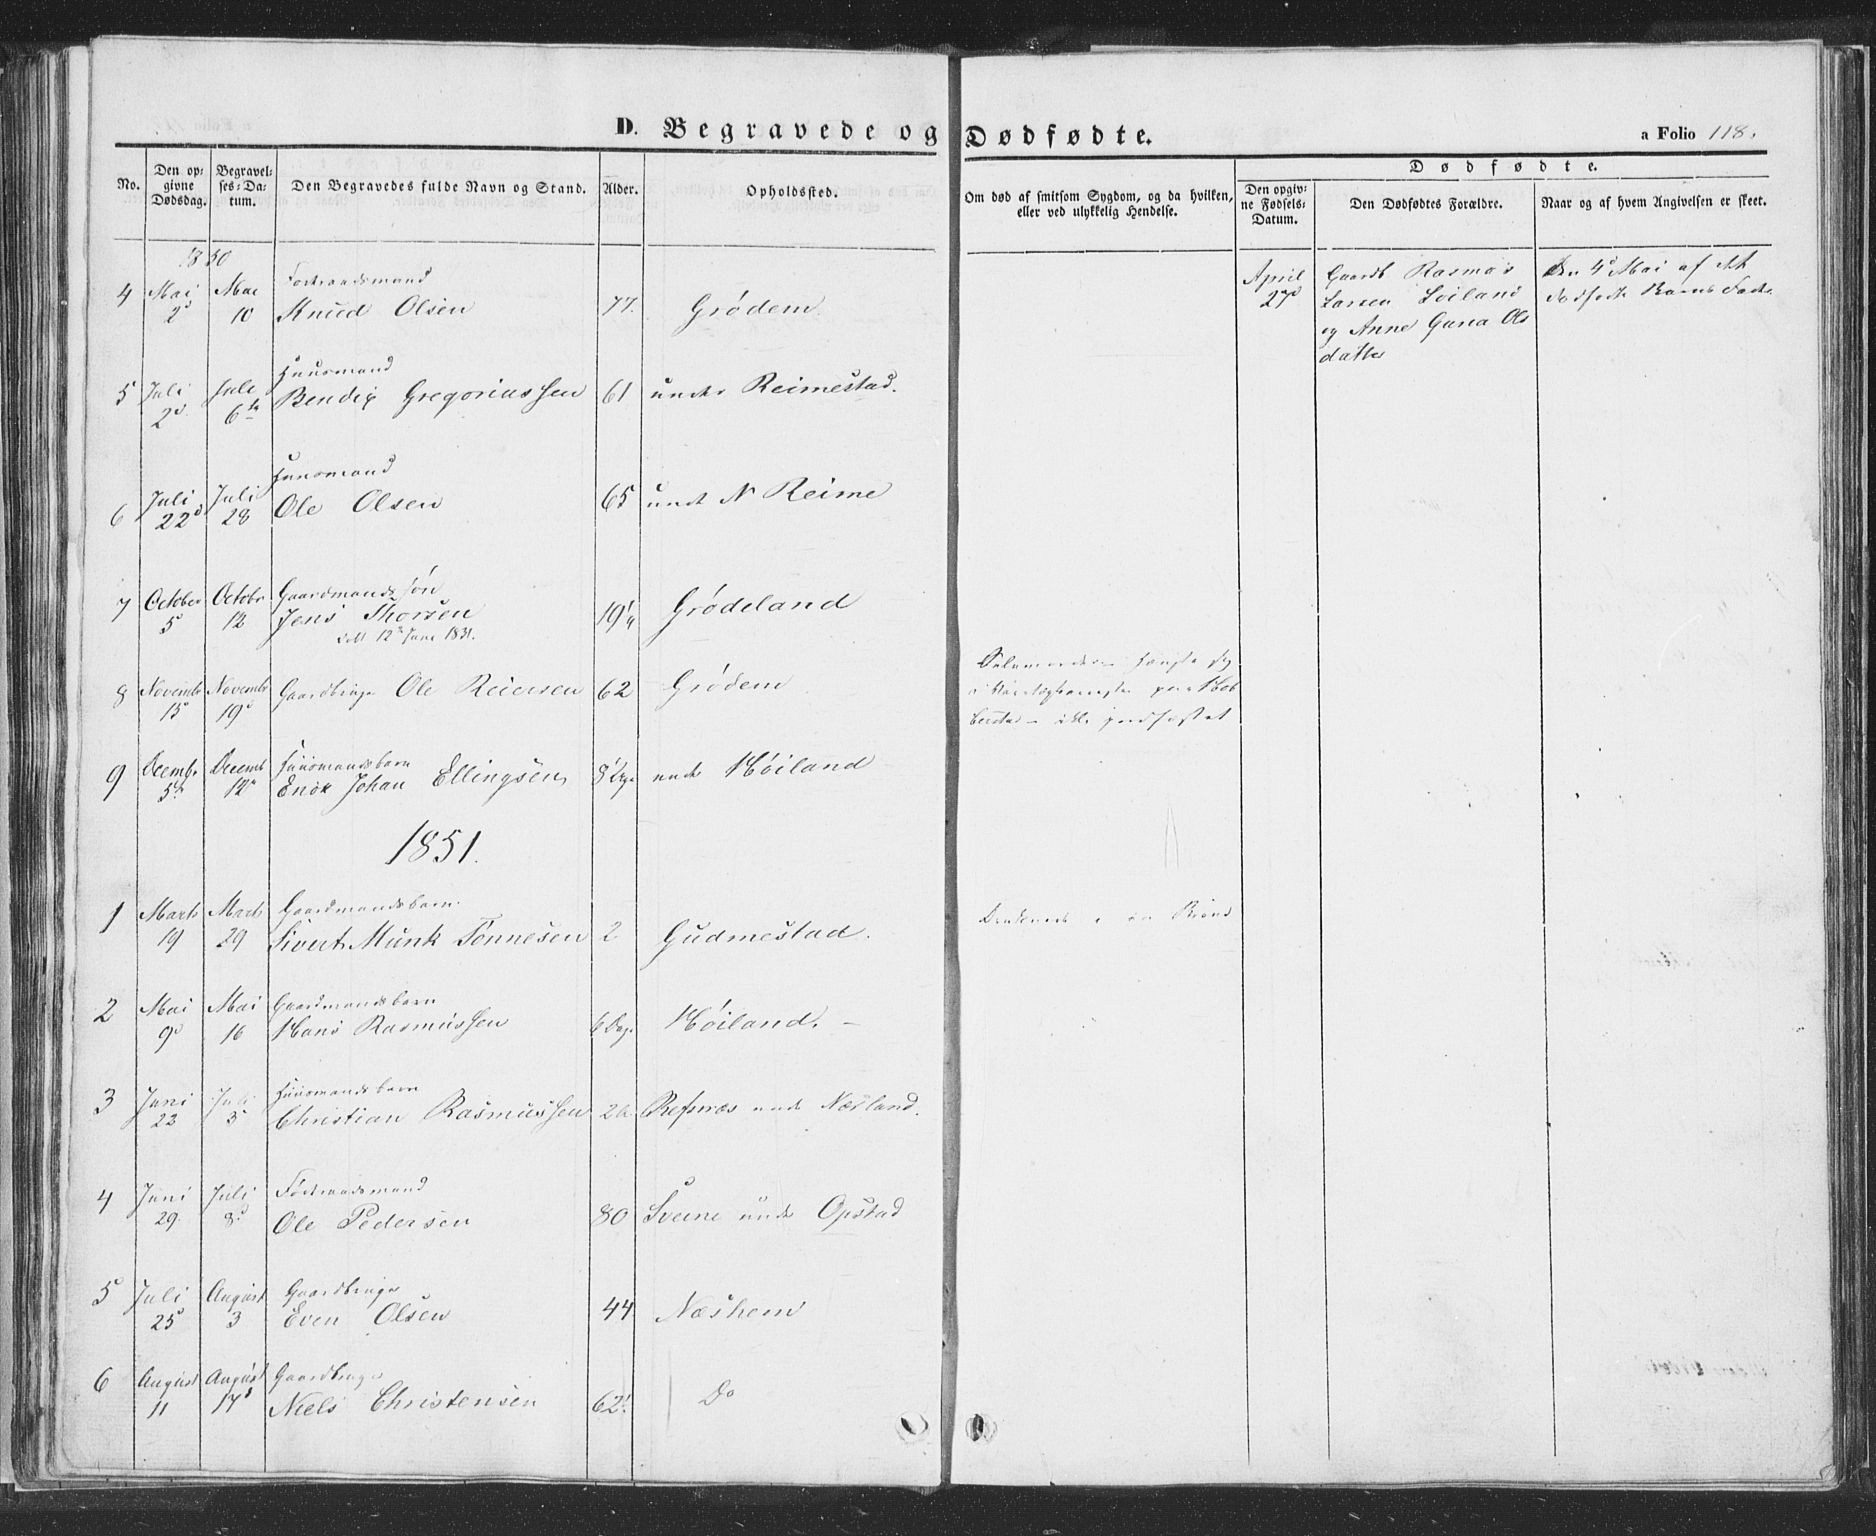 D. Begravede og Dødfødte.
a Folio 118.
No.
Den opgivne Dødsdag.
Begravelses-Datum.
Den Begravedes fulde Navn og Stand.
Alder.
Opholdssted.
Om død af smitsom Sygdom, og da hvilken,
eller ved ulykkelig Hendelse.
Dødfødte.
Den opgivne Fødsels-Datum.
Den Dødfødtes Forældre.
Naar og af hvem Angivelsen er skeet.
1850
4 Mai 2d Mai 10 Knud Olsen 77. Grødem
April 27d
Gaardb Rasmus
Larsen
og Anne Guria Ols
datter
Den 4d Mai af det
dødfødte Barns Fader
Huusmand
5 Juli 2d Juli 6te Bendix Gregoriussen 61 under Reimestad.
Huusmand
6 Juli 22d Juli 28 Ole Olsen 65 und N Reime
Gaardmandssøn
7 October 5 Octobr 12 Jens Thorsen 19¼ Grødeland
døbt 12te Juni 1831.
8 Novembr 15 Novembr 19d Gaardbruger Ole Reiersen 62 Grødem
Selvmorder
Huusmandsbarn
9 Decemb. 5te Decemb 12te Enok Johan Ellingsen 8 Dage unde Høiland
1851.
Gaardmandsbarn
1 Marts 19 Marts 29 Sivert Munk Tønnesen 2 Gudmestad.
Druknede i en Brønd
Gaardmandsbarn
2 Mai 9d Mai 16 Hans Rasmussen 6 Dage Høiland. –
Huusmandsbarn
3 Juni 23 Juli 5 Christian Rasmussen Refsnæs unde Nærland.
Føderaadsmand
4 Juni 29 Juli 8d Ole Pedersen 80 Sveine unde Opstad
Gaardbruger
5 Juli 25 August 3 Even Olsen 44 Næshem
Gaardbruger
6 August 11 August 17d Niels Christensen 62 Do